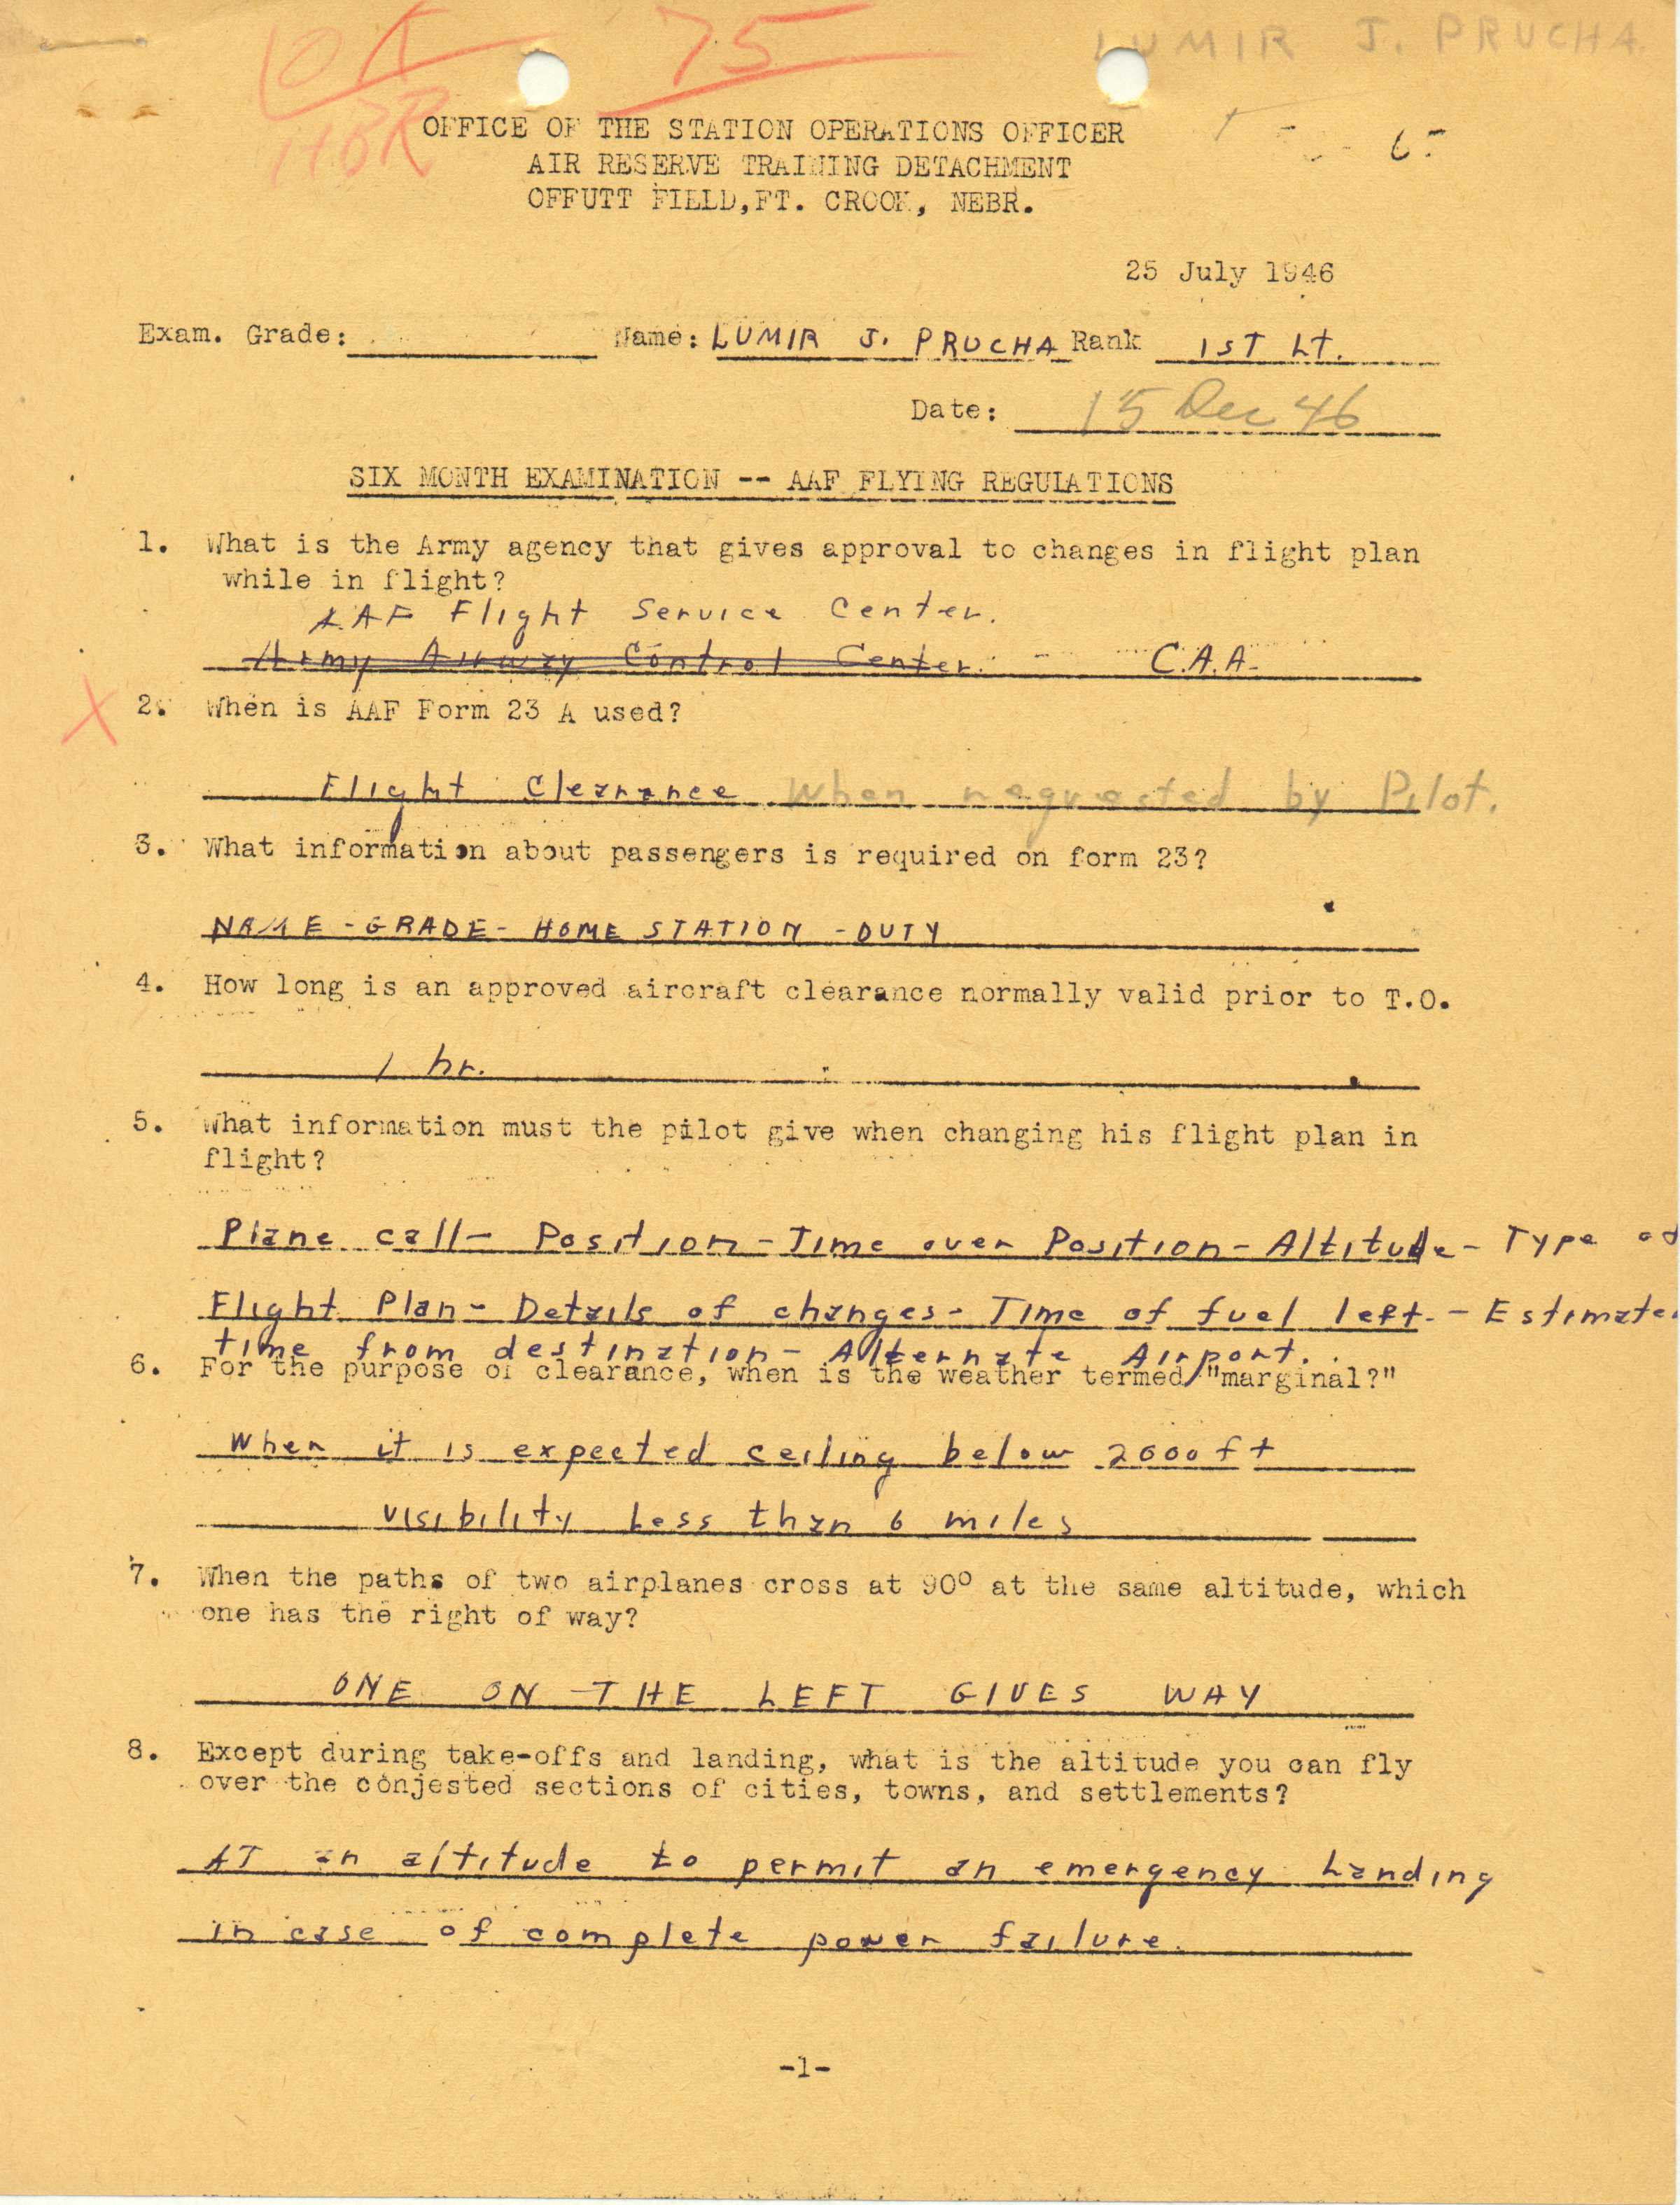 OK 75 LUMIR J. PRUCHA
HBR
OFFICE OF THE STATION OPERATIONS OFFICER
AIR RESERVE TRAINING DETACHMENT
OFFUTT FIELD,FT. CROOK, NEBR.
25 July 1946
Exam. Grade: Name: LUMIR J. PRUCHA Rank 1ST LT.
Date: 15 Dec 46
SIX MONTH EXAMINATION -- AAF FLYING REGULATIONS
1. What is the Army agency that gives approval to changes in flight plan
while in flight?
AAF Flight Service Center.
Army Airway Control Center. - C.A.A.
X 2. When is AAF Form 23 A used?
Flight Clearance when requested by Pilot.
3. What information about passengers is required on form 23?
NAME - GRADE - HOME STATION - DUTY
4. How long is an approved aircraft clearance normally valid prior to T.O.
1 hr.
5. What information must the pilot give when changing his flight plan in
flight?
Plane call - Position - Time over Position - Altitude - Type of
Flight Plan - Details of changes - Time of fuel left. - Estimated
time from destination - Alternate Airport.
6. For the purpose of clearance, when is the weather termed "marginal?"
When it is expected ceiling below 2000 ft
visibility Less than 6 miles
7. When the paths of two airplanes cross at 90° at the same altitude, which
one has the right of way?
ONE ON THE LEFT GIVES WAY
8. Except during take-offs and landing, what is the altitude you can fly
over the conjested sections of cities, towns, and settlements?
AT an altitude to permit an emergency Landing
in case of complete power failure.
-1-